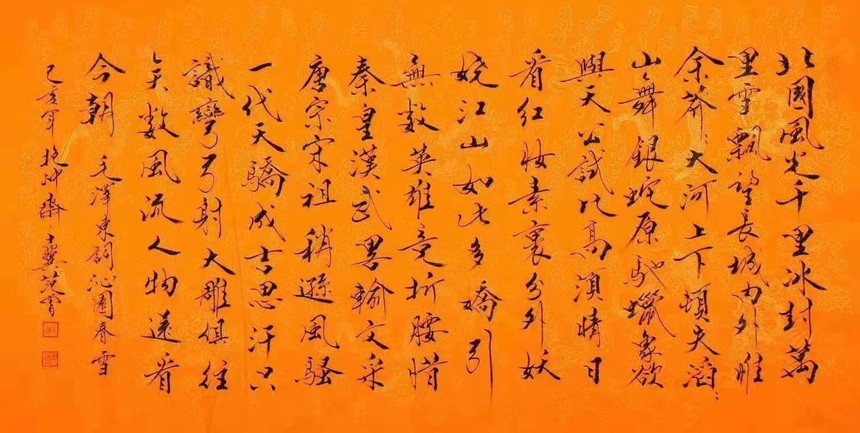 北國風光千里冰封萬
里雪飄望長城内外惟
余莽〻大河上下頓失滔〻
山舞銀蛇原馳蠟象欲
與天公試比高須晴日
看紅妝素裹分外妖
嬈江山如此多嬌引
無數英雄竞折腰惜
秦皇漢武畧輸文采
唐宗宋祖稍遜風騷
一代天驕成吉思汗只
識彎弓射大雕俱往
矣数風流人物還看
今朝 毛澤東詞沁園春雪
己亥年抱冲齋十翼范曾